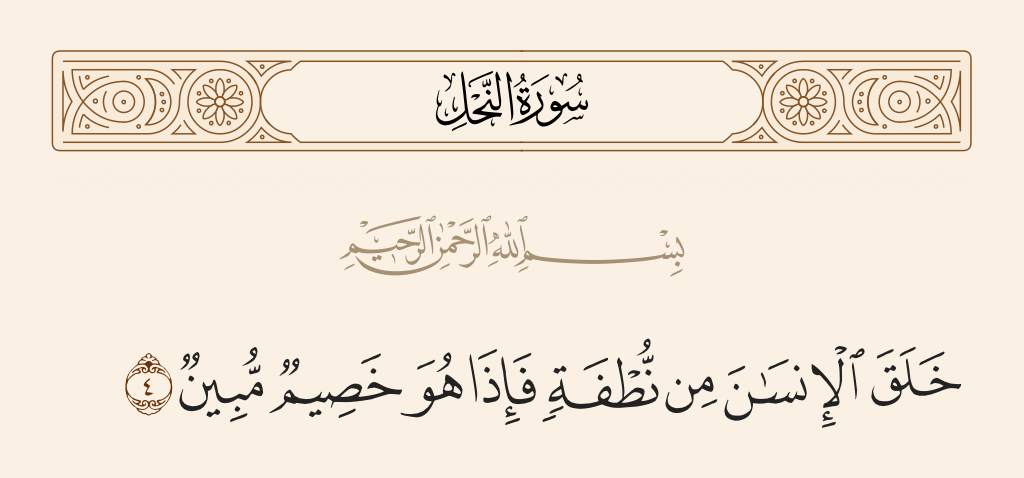 سُورَةُ النَّحْلِ
بِسْمِ ٱللَّهِ ٱلرَّحْمَٰنِ ٱلرَّحِيمِ
خَلَقَ ٱلْإِنسَـٰنَ مِن نُّطْفَةٍ فَإِذَا هُوَ خَصِيمٌ مُّبِينٌ ٤